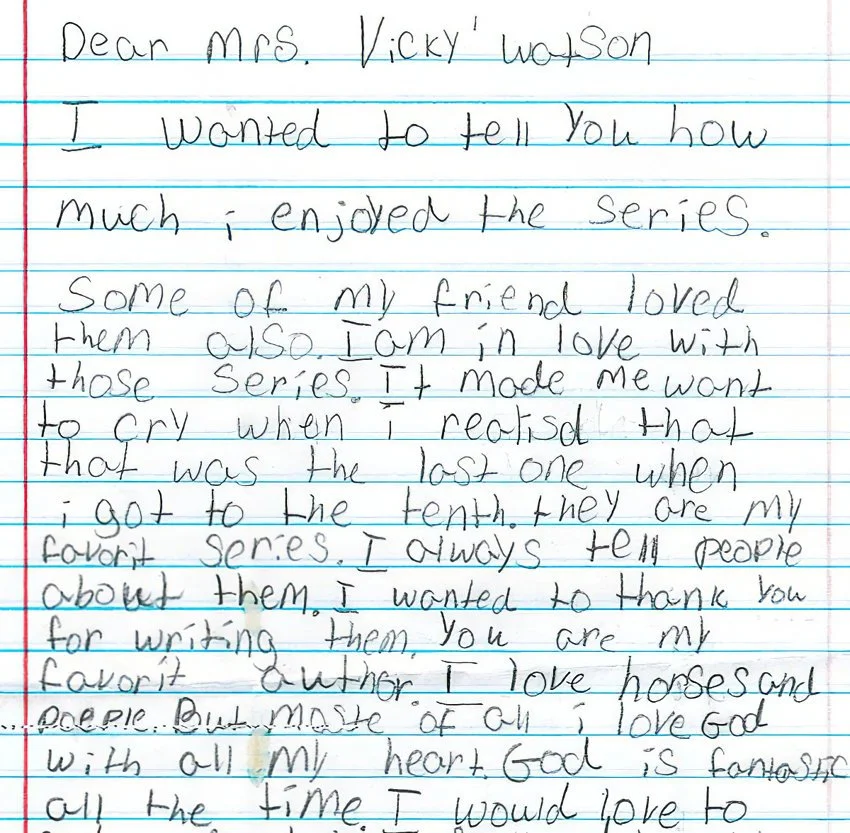 Dear Mrs. Vicky' watson
I wanted to tell you how
much i enjoyed the series.
Some of my friend loved
them also. I am in love with
those series. It made me want
to cry when i realisd that
that was the last one when
i got to the tenth. they are my
favorit series. I always tell people
about them. I wanted to thank you
for writing them. You are my
favorit author. I love horses and
poeple. But moste of all i love God
with all my heart. God is fantastic
all the time. I would love to